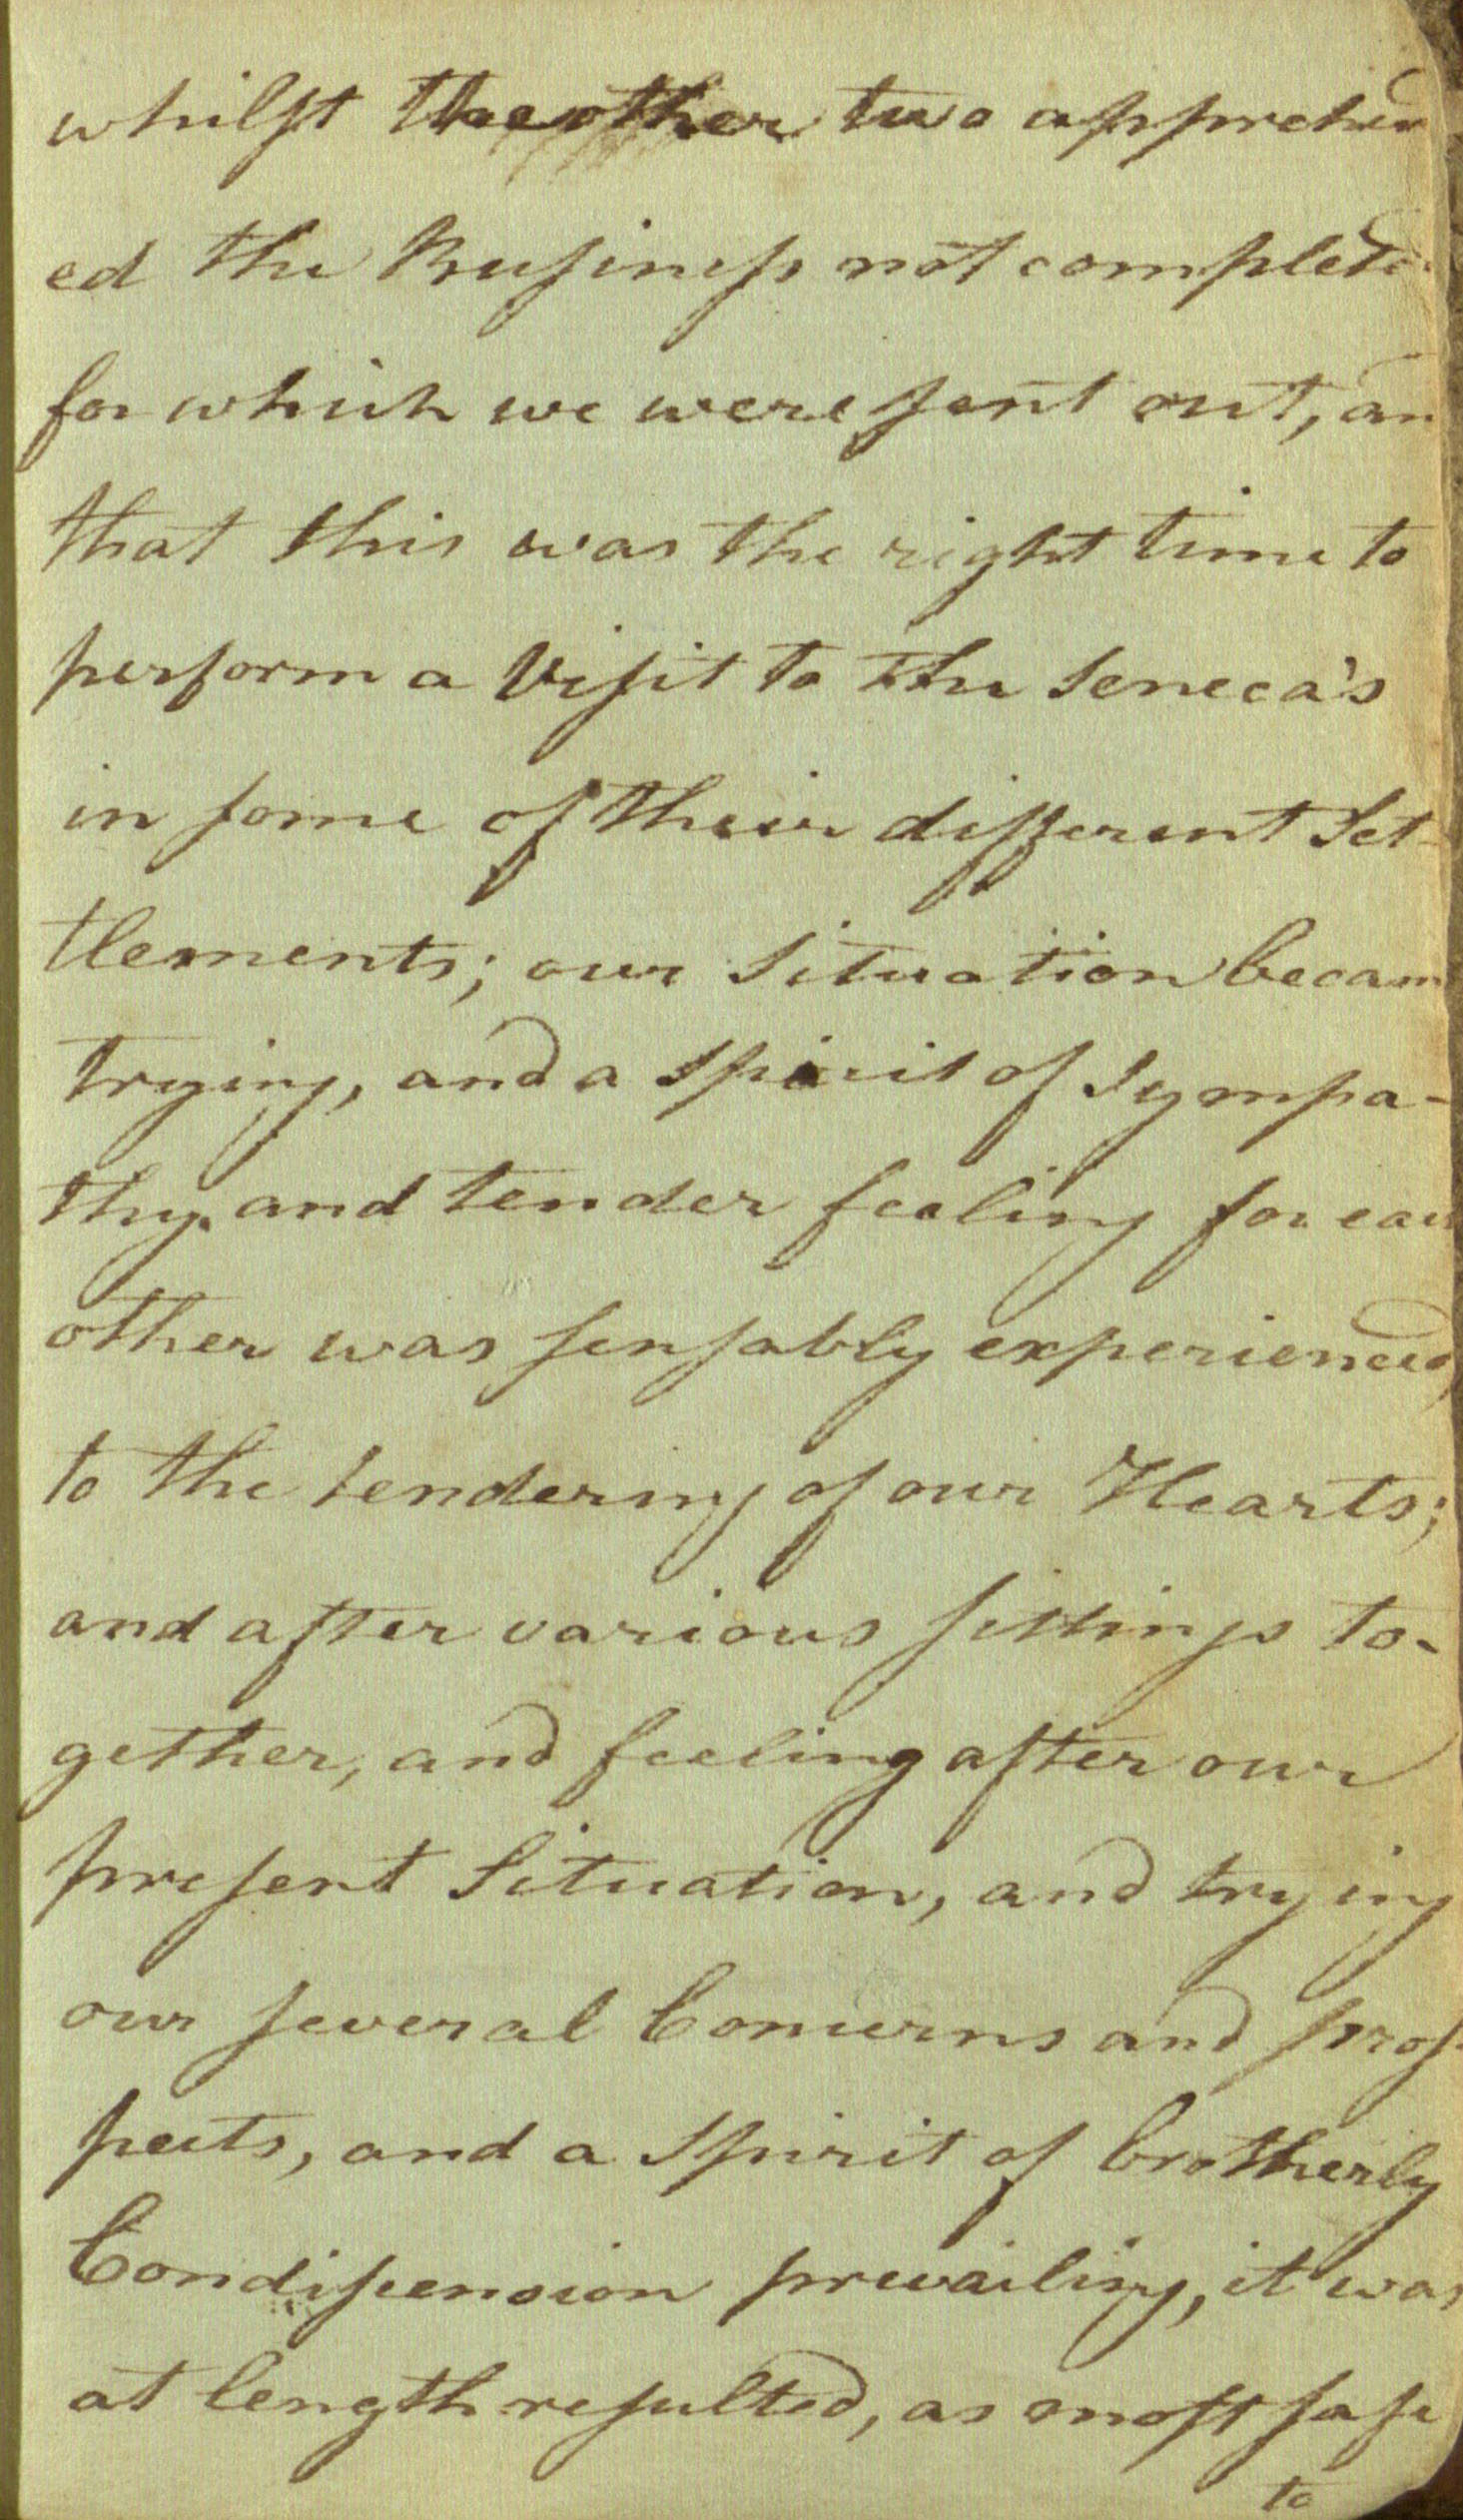 whilst the other two apprehend
ed the Business not completed
for which we were sent out, an
that this was the right time to
perform a Visit to the Seneca's
in some of their different Set-
tlements; our Situation becam
trying, and a Spirit of Sympa-
thy and tender feeling for eac
other was sensably experienced,
to the tendering of our Hearts;
and after various sittings to-
gether, and feeling after our
present Situation, and trying
our several Concerns and pros-
pects, and a Spirit of brotherly
Condiscension prevailing, it was
at length resulted, as most safe
to